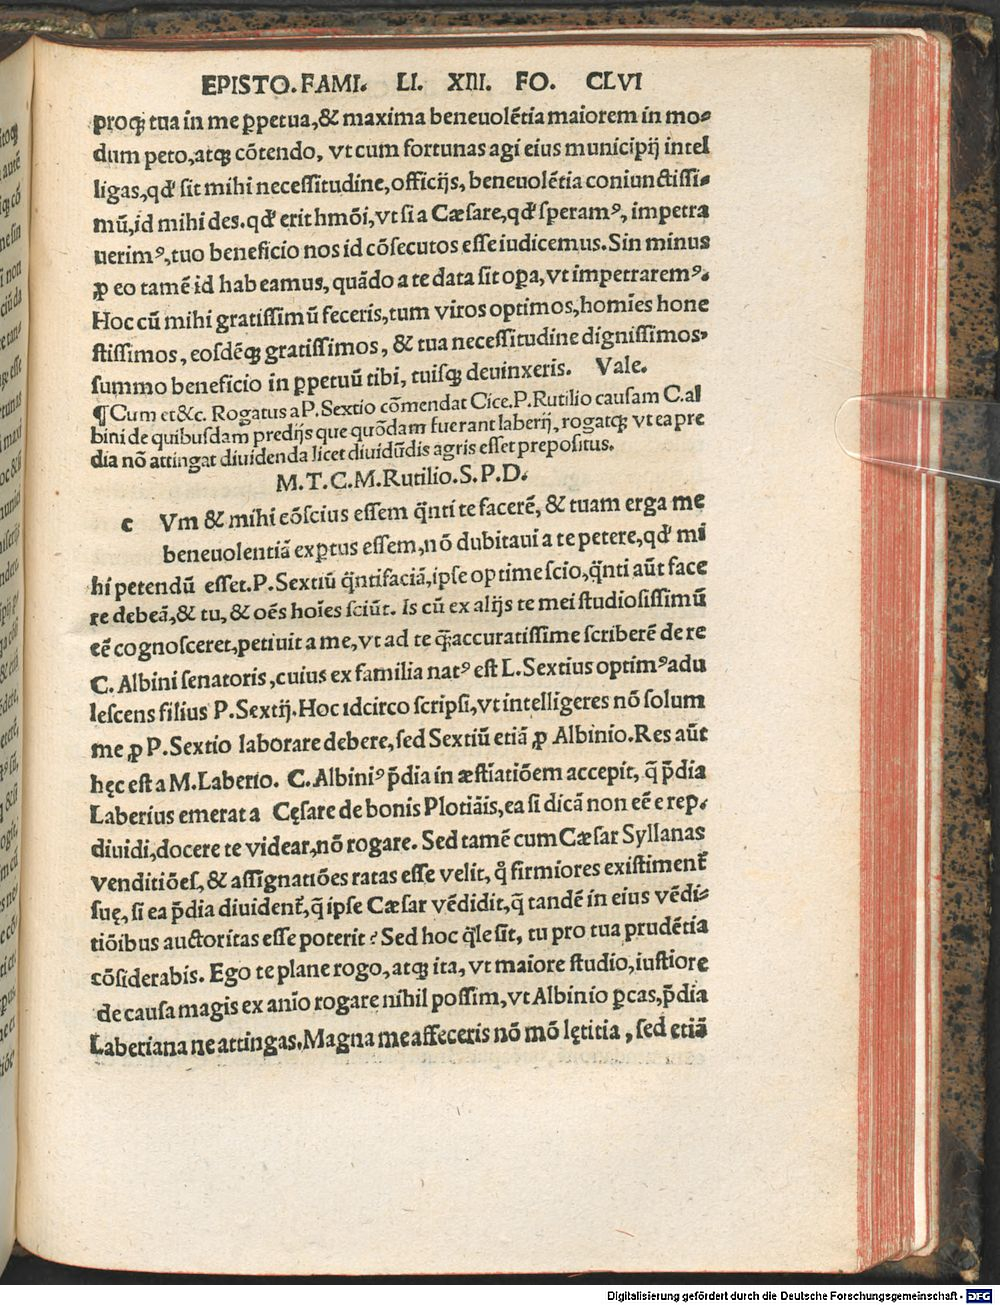 EPISTO. FAMI. LI. XIII. FO. CLVI
proqꝫ tua in me ꝑpetua, & maxima beneuolẽtia maiorem in mo⸗
dum peto, atqꝫ cõtendo, vt cum fortunas agi eius municipij intel
ligas, qđ sit mihi necessitudine, officijs, beneuolẽtia coniunctissi⸗
mũ, id mihi des. qđ erit hmõi, vt si a Cæsare, qđ speramꝰ, impetra
uerimꝰ, tuo beneficio nos id cõsecutos esse iudicemus. Sin minus
ꝓ eo tamẽ id habeamus, quãdo a te data sit oꝑa, vt impetraremꝰ.
Hoc cũ mihi gratissimũ feceris, tum viros optimos, homĩes hone
stissimos, eosdẽqꝫ gratissimos, & tua necessitudine dignissimos,
summo beneficio in ꝑpetuũ tibi, tuisqꝫ deuinxeris. Vale.
¶ Cum et &c. Rogatus a P. Sextio cõmendat Cice. P. Rutilio causam C. al
bini de quibusdam predijs que quõdam fuerant laberij, rogatqꝫ vt ea pre
dia nõ attingat diuidenda licet diuidũdis agris esset prepositus.
M. T. C. M. Rutilio. S. P. D.
c Vm & mihi cõscius essem q̃nti te facerẽ, & tuam erga me
beneuolentiã exꝑtus essem, nõ dubitaui a te petere, qđ mi
hi petendũ esset. P. Sextiũ q̃nti faciã, ipse optime scio, q̃nti aũt face
re debeã, & tu, & oẽs hoĩes sciũt. Is cũ ex alijs te mei studiosissimũ
eẽ cognosceret, petiuit a me, vt ad te q̃ accuratissime scriberẽ de re
C. Albini senatoris, cuius ex familia natꝰ est L. Sextius optimꝰ adu
lescens filius P. Sextij. Hoc idcirco scripsi, vt intelligeres nõ solum
me ꝓ P. Sextio laborare debere, sed Sextiũ etiã ꝓ Albinio. Res aũt
hęc est a M. Laberio. C. Albiniꝰ p̃dia in æstiatiõem accepit, q̃ p̃dia
Laberius emerat a Cęsare de bonis Plotiãis, ea si dicã non eẽ e rep.
diuidi, docere te videar, nõ rogare. Sed tamẽ cum Cæsar Syllanas
venditiões, & assignatiões ratas esse velit, q̊ firmiores existiment̃
suę, si ea p̃dia diuident̃, q̃ ipse Cæsar vẽdidit, q̃ tandẽ in eius vẽdi⸗
tiõibus auctoritas esse poterit? Sed hoc q̃le sit, tu pro tua prudẽtia
cõsiderabis. Ego te plane rogo, atqꝫ ita, vt maiore studio, iustiore
de causa magis ex anĩo rogare nihil possim, vt Albinio ꝑcas, p̃dia
Laberiana ne attingas. Magna me affeceris nõ mõ lętitia, sed etiã
Digitalisierung gefördert durch die Deutsche Forschungsgemeinschaft - DFG